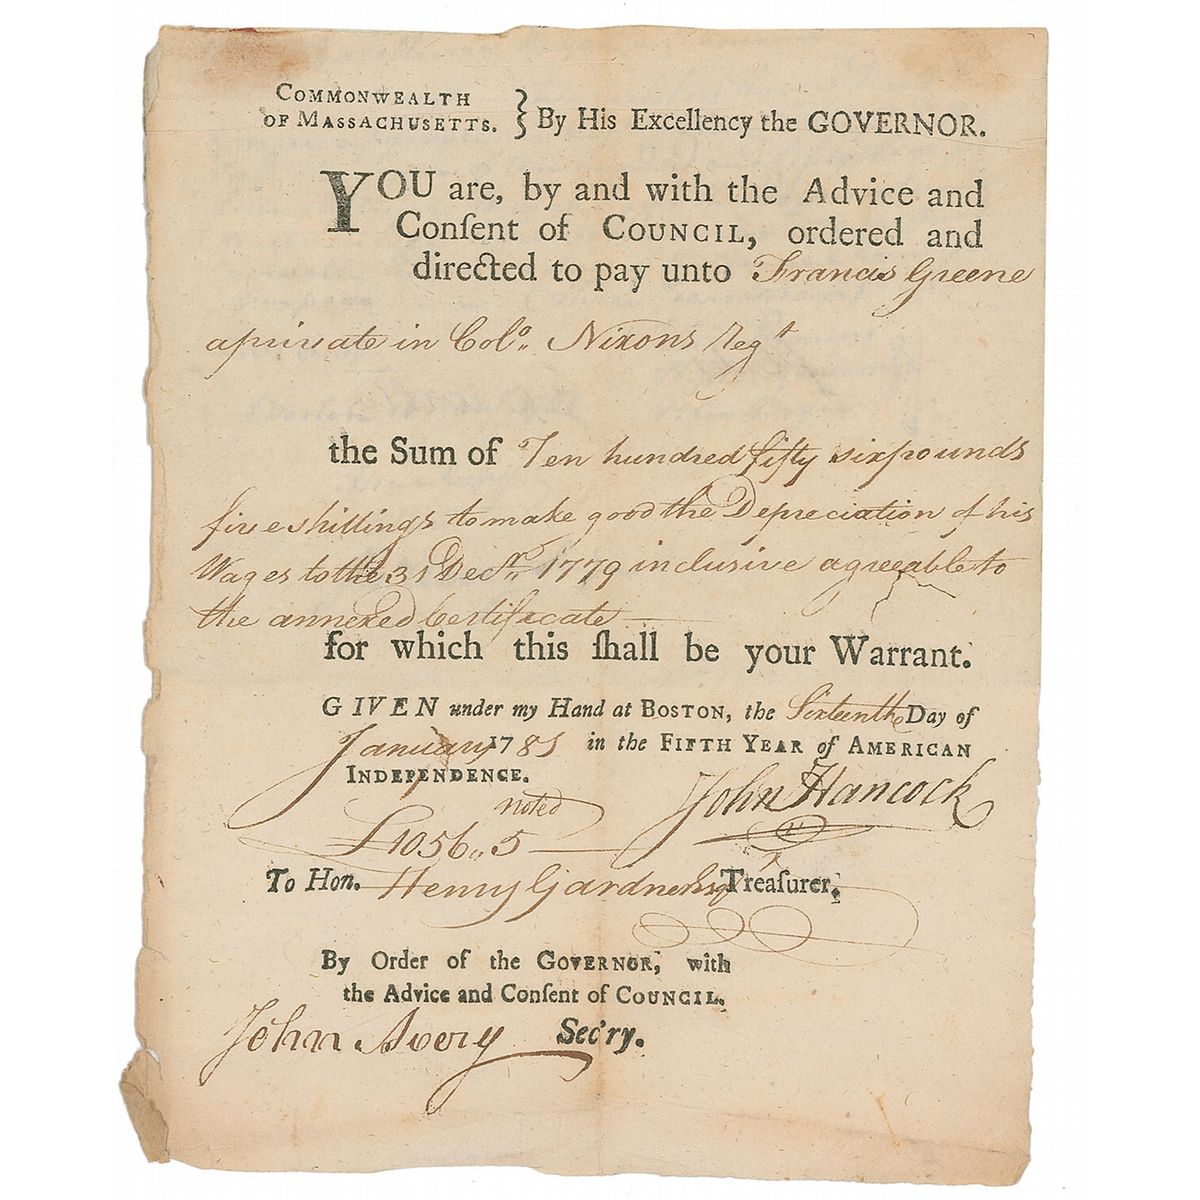 COMMONWEALTH
OF MASSACHUSETTS. } By His Excellency the GOVERNOR.
YOU are, by and with the Advice and
Conſent of COUNCIL, ordered and
directed to pay unto Francis Greene
a private in Colo,, Nixons Regt
the Sum of Ten hundred fifty six pounds
five shillings to make good the Depreciation of his
Wages to the 31 Decr,, 1779 inclusive agreeable to
the annexed Certificate
for which this ſhall be your Warrant.
GIVEN under my Hand at BOSTON, the Sixteenth Day of
January 1781 in the FIFTH YEAR of AMERICAN
INDEPENDENCE.
noted
John Hancock
£1056,,5
To Hon. Henry Gardner Esq Treaſurer.
By Order of the GOVERNOR, with
the Advice and Conſent of COUNCIL.
John Avery Sec'ry.